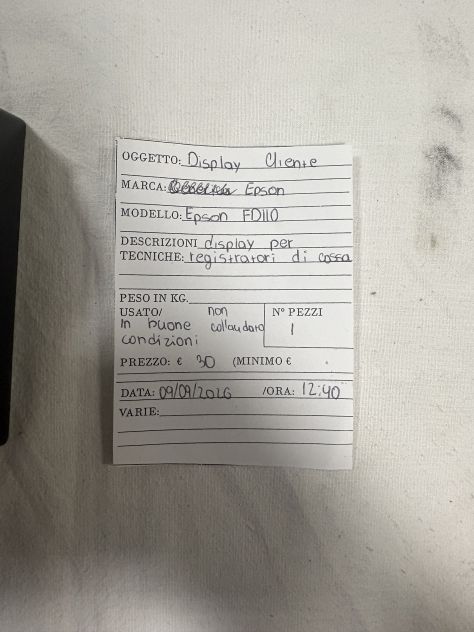 OGGETTO: Display Cliente
MARCA: Epson
MODELLO: Epson FD110
DESCRIZIONI display per
TECNICHE: registratori di cassa
PESO IN KG.
USATO/ non N° PEZZI
In buone collaudato 1
condizioni
PREZZO: € 30 (MINIMO €
DATA: 09/09/2026 /ORA: 12:40
VARIE: